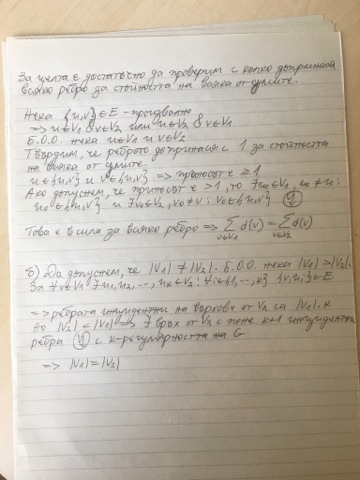 За целта е достатъчно да проверим с колко допринася
всяко ребро за стойността на всяка от сумите.
Нека {u,v}∈E - произволно
=> u∈V₁ & v∈V₂ или u∈V₂ & v∈V₁
Б.О.О. нека u∈V₁ и v∈V₂
Твърдим, че реброто допринася с 1 за стойността
на всяка от сумите.
u∈{u,v} и v∈{u,v} => приносът е ≥1
Ако допуснем, че приносът е >1, то ∃u₀∈V₁, u₀≠u:
u₀∈{u,v} и ∃v₀∈V₂, v₀≠v: v₀∈{u,v}
Това е в сила за всяко ребро => ∑ d(v) = ∑ d(v)
v∈V₁ v∈V₂
б) Да допуснем, че |V₁|≠|V₂|. Б.О.О. нека |V₁|>|V₂|.
За ∀v∈V₁ ∃u₁,u₂,...,uₖ∈V₂: ∀i∈{1,...,k} {v,uᵢ}∈E
=> ребрата инцидентни на върхове от V₂ са |V₁|.k
Но |V₂|<|V₁| => ∃ връх от V₂ с поне k+1 инцидентни
ребра с k-регулярността на G
=> |V₁|=|V₂|